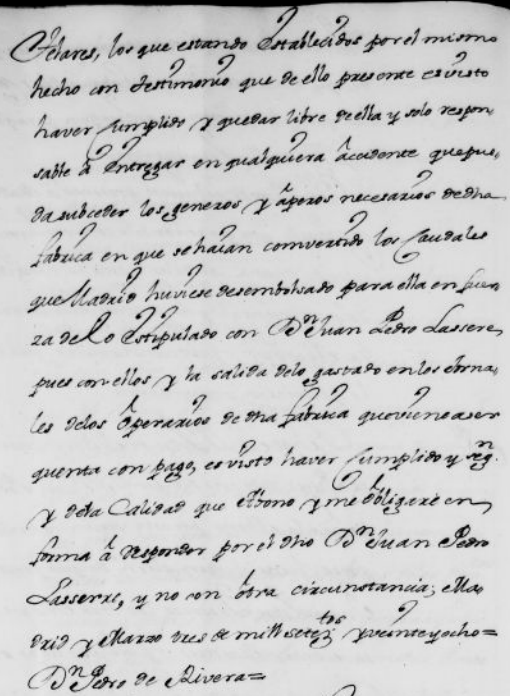 Telares, los que estando Establecidos por el mismo
hecho con testimonio que de ello presente es visto
haver Cumplido y quedar libre de ella y solo respon
sable â Entregar en qualquiera âccidente que pue
da subceder los generos y âperos necesarios de dha
fabrica en que se haian comvertido los Caudales
que Madrid huviese desembolsado para ella en fuer
za de lo Estipulado con Dn Juan Pedro Lassere,
pues con ellos y la salida delo gastado en los Jorna,
les delos Operarios de dha fabrica que viene a ser
quenta con pago, es visto haver Cumplido y seg.n
y dela Calidad que Abono y me Obligaré en
forma â responder por el dho Dn Juan Pedro
Lasserre, y no con ôtra circunstancia; Ma
drid y Marzo tres de mill setez.tos y veinte y ocho=
Dn Pedro de Rivera=